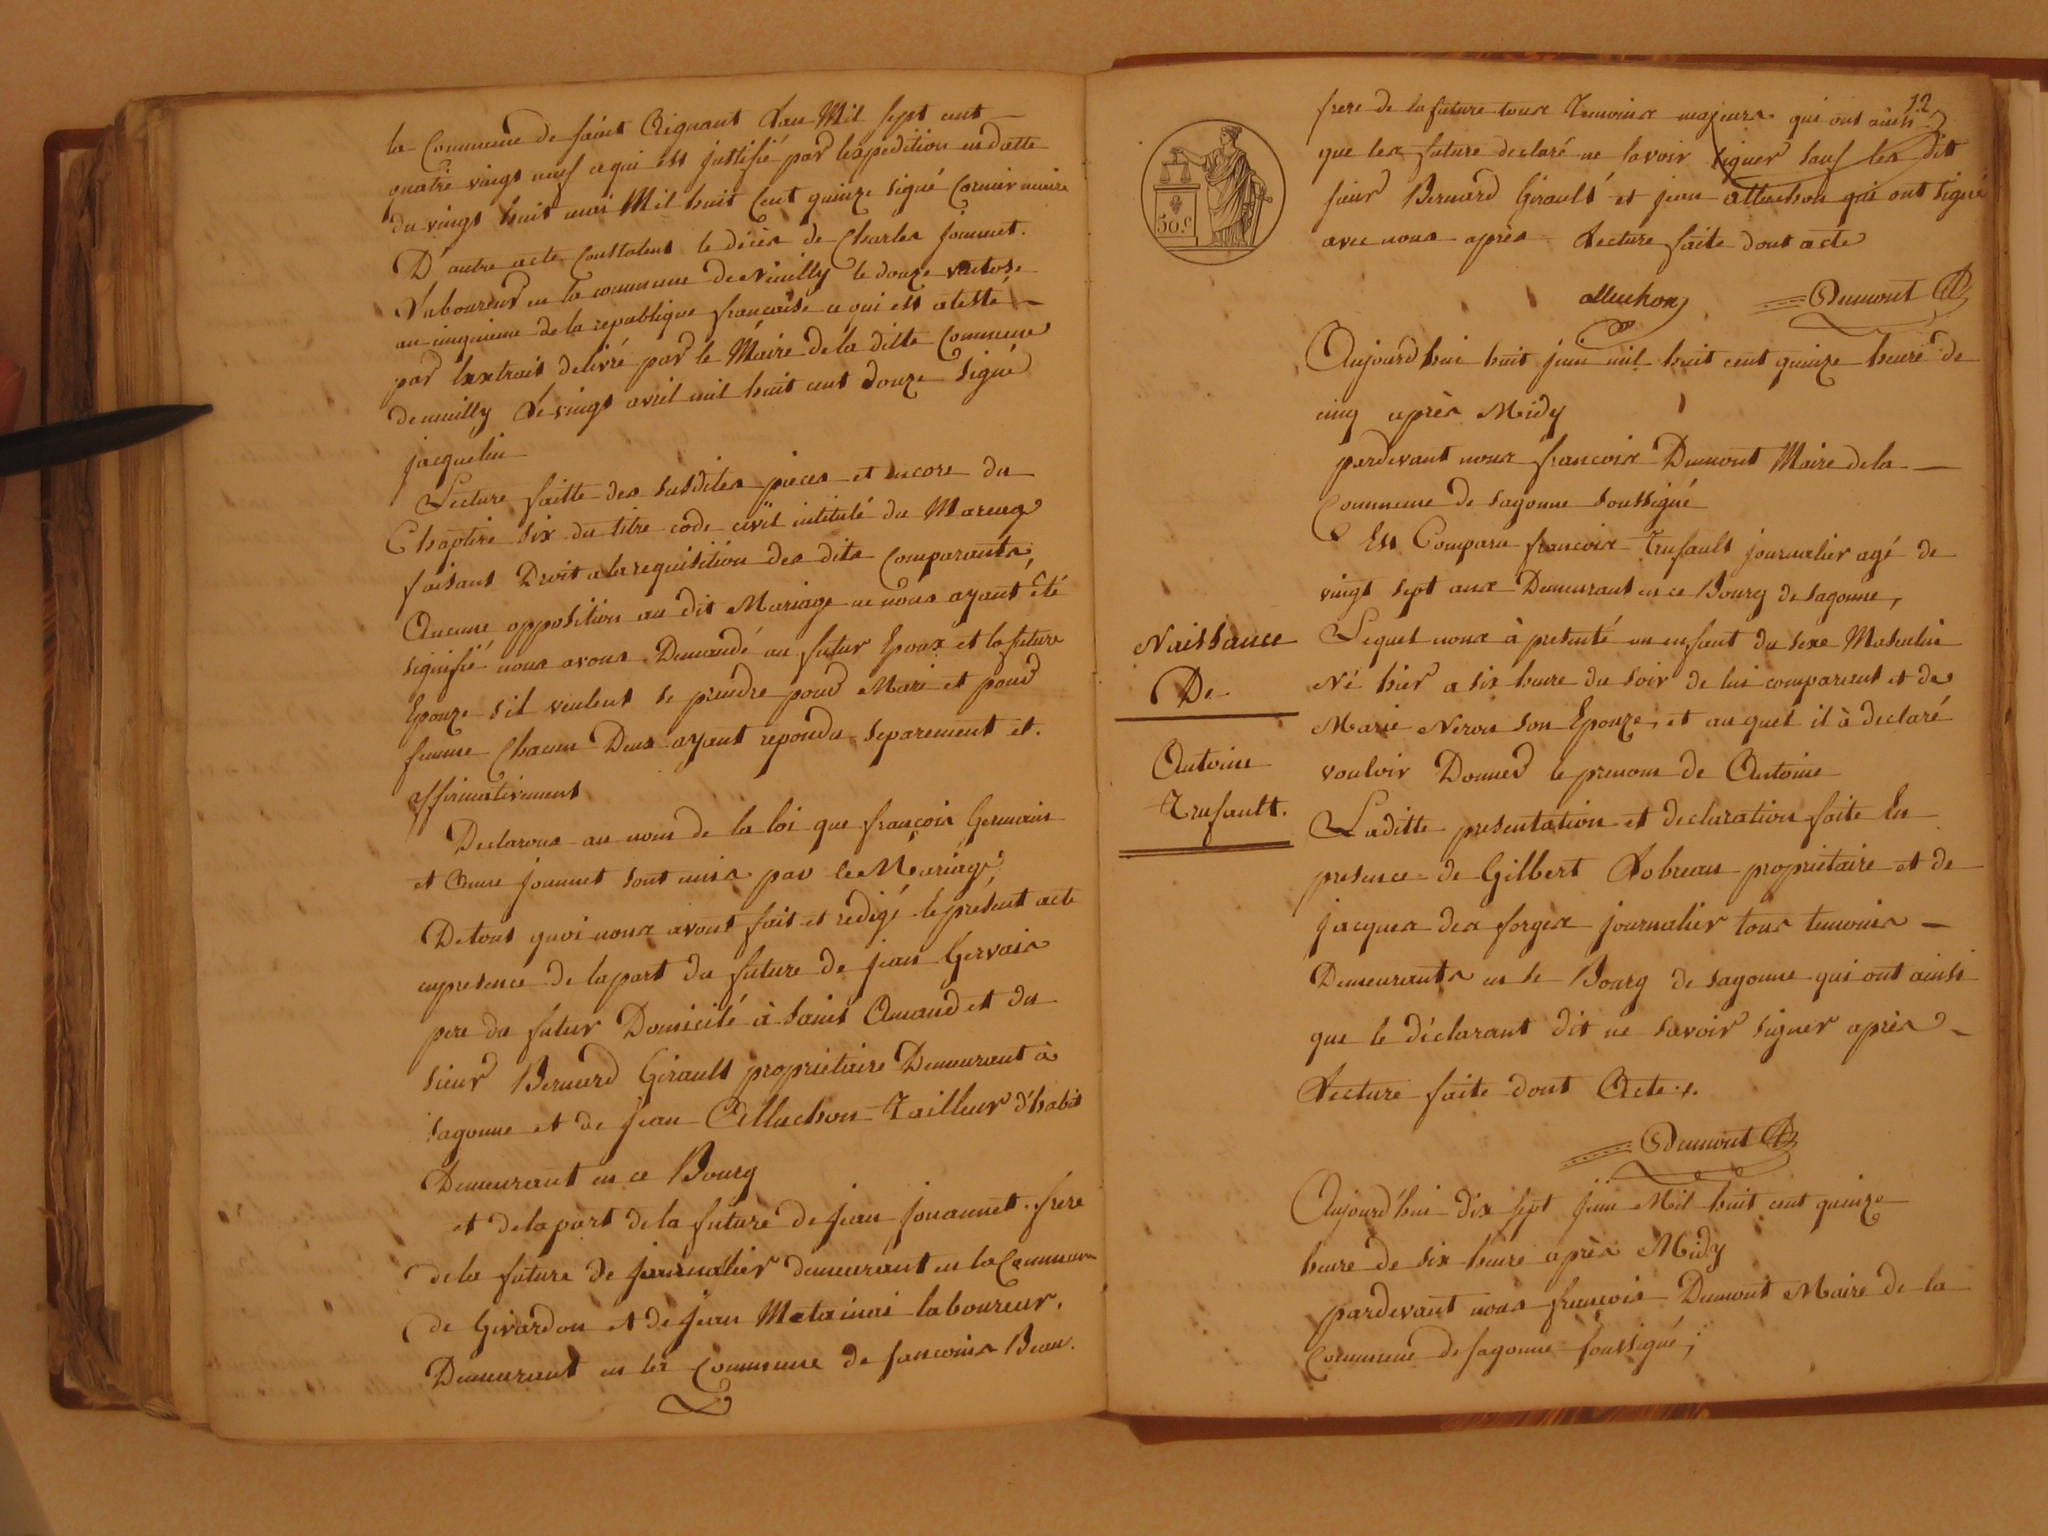 la Commune de saint Aignant Lan Mil sept cent
quatre vingt neuf ce qui est justifié par lexpedition en datte
du vingt huit mai Mil huit Cent quinze signé Cornier maire
D'autre acte Constatent le décès de Charles Jommet.
Laboureur en la commune de Neuilly le douze vantose
an cinquieme de la republique francaise ce qui est atesté
par Lextrait delivré par le Maire de la ditte Commune
de neuilly Le vingt avril mil huit cent douze signé
jacquelin
Lecture faitte des susdites pieces et encore du
Chapitre six du titre code civil intitulé du Mariage
faisant Droit a la requisition des dits Comparants,
Aucune opposition au dit Mariage ne nous ayant été
signifié nous avons Demandé au futur Epoux et la future
Epouze s'il veulent se prendre pour Mari et pour
femme Chacun Deux ayant repondu separement et.
affirmativement
Declarons au nom de la loi que françois Germain
et Anne jommet sont unis par le Mariage,
De tout quoi nous avont fait et redigé le présent acte
en presence de la part du future de jean Gervais
pere du futur Domicilé à saint Amand et du
sieur Bernard Girault propriétaire Demeurant à
sagonne et de jean Alluchon Tailleur d'habit
Demeurant en ce Bourg
et de la part de la future de jean jouannet. frere
de la future de journallier demeurant en la Commune
de Givardon et de jean Metainai laboureur.
Demeurant en la Commune de sancoins Bran.
12
frere de la future tous Temoins majeurs qui ont ainsi
que les future declaré ne savoir signer sauf les dit
sieur Bernard Girault et jean alluchon qui ont signé
avec nous après Lecture faite dont acte
50.c
alluchon Dumont
Aujourdhui huit juin mil huit cent quinze heure de
cinq après Midy
pardevant nous francois Dumont Maire de la
Commune de sagonne soussigné
Est Comparu francois Trufault journalier agé de
vingt sept ans Demeurant en ce Bourg de sagonne,
Naissance
De
Antoine
Trufault.
Lequel nous à presenté un enfant du sexe Masculin
Né hier a six heure du soir de lui comparant et de
Marie Neron son Epouze, et au quel il à declaré
vouloir Donner le prenom de Antoine
Laditte presentation et declaration faite En
presence de Gilbert Lobreau propriétaire et de
jacques des forges journalier tous temoins
Demeurants en le Bourg de sagonne qui ont ainsi
que le déclarant dit ne savoir signer après
Lecture faite dont Acte.
Dumont
Aujourd'hui dix sept juin Mil huit cent quinze
heure de six heure après Midy
pardevant nous françois Dumont Maire de la
Commune de sagonne soussigné,